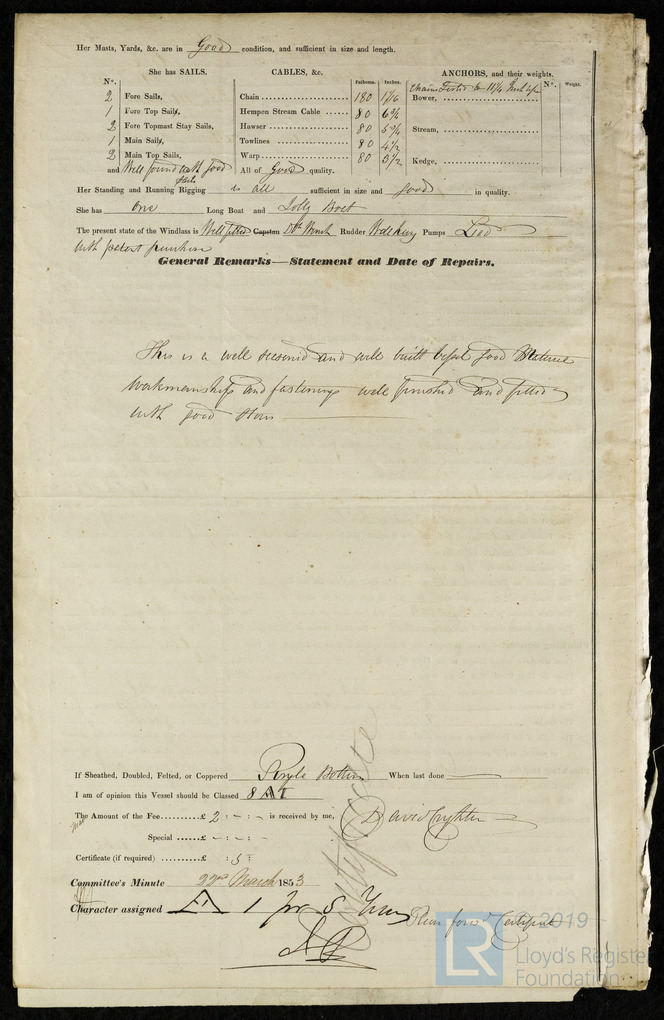 Her Masts, Yards, &c. are in Good condition, and sufficient in size and length.
She has SAILS. CABLES, &c. Fathoms. Inches. ANCHORS, and their weights. Nº. Weight.
Nº.
2 Fore Sails, Chain 180 1 1/16 Chains Tested to
1 Fore Top Sails, Hempen Stream Cable 80 Bower,
2 Fore Topmast Stay Sails, Hawser 80 Stream,
1 Main Sails, Towlines 80 4 1/2
2 Main Top Sails, Warp 80 3 1/2 Kedge,
and Well found with good Sails All of Good quality.
Her Standing and Running Rigging is all sufficient in size and good in quality.
She has One Long Boat and Jolly Boat
The present state of the Windlass is Well fitted Capstan Winch Rudder Pumps Lead
with patent
General Remarks—Statement and Date of Repairs.
This is a well seasoned and well built good Material
Workmanship and fastenings well finished and fitted
with good Stores
If Sheathed, Doubled, Felted, or Coppered Bottom When last done
I am of opinion this Vessel should be Classed 8 A 1
The Amount of the Fee £ 2 : - : - is received by me, David Crighton
Special £ - : - : -
Certificate (if required) £ : 5 :
Committee's Minute 22nd March 1853
Character assigned A 1 for 8 Years
Certificate
© 2019
LR
Lloyd's Register
Foundation